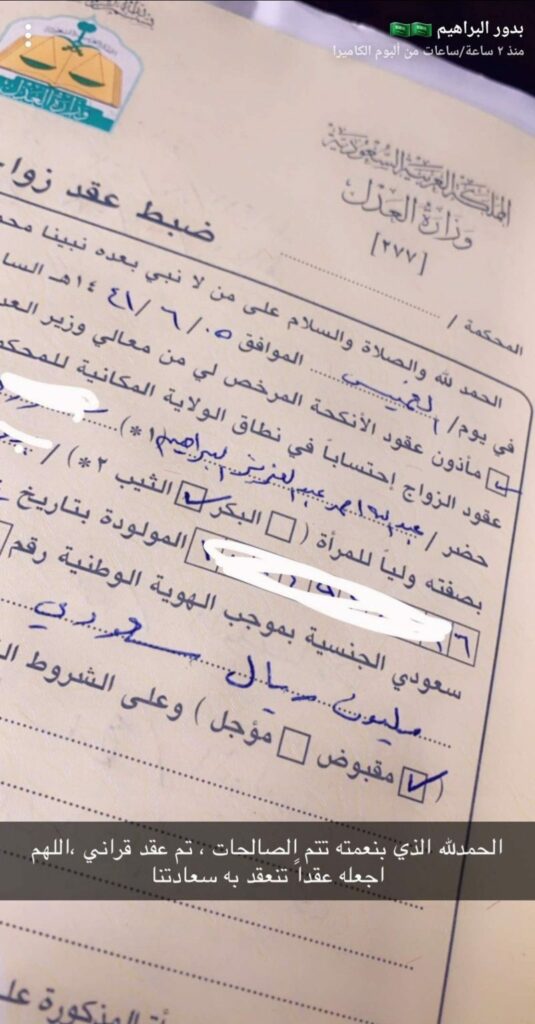 بدور البراهيم 🇸🇦🇸🇦
منذ ٢ ساعة/ساعات من ألبوم الكاميرا
وزارة العدل
المملكة العربية السعودية
وزارة العدل
[٢٧٧]
ضبط عقد زوا
المحكمة /
الحمد لله والصلاة والسلام على من لا نبي بعده نبينا محم
في يوم/ الخميس الموافق ٠٥/ ٦ / ١٤٤١هـ السا
مأذون عقود الأنكحة المرخص لي من معالي وزير العد
عقود الزواج إحتساباً في نطاق الولاية المكانية للمحكم
حضر / عبدالعزيز البراهيم (١*)
بصفته ولياً للمرأة ( البكر الثيب ٢*) /
٦ المولودة بتاريخ
سعودي الجنسية بموجب الهوية الوطنية رقم
مليون ريال سعودي
( مقبوض مؤجل ) وعلى الشروط ال
الحمدلله الذي بنعمته تتم الصالحات ، تم عقد قراني ،اللهم
اجعله عقداً تنعقد به سعادتنا
أة المذكورة عل